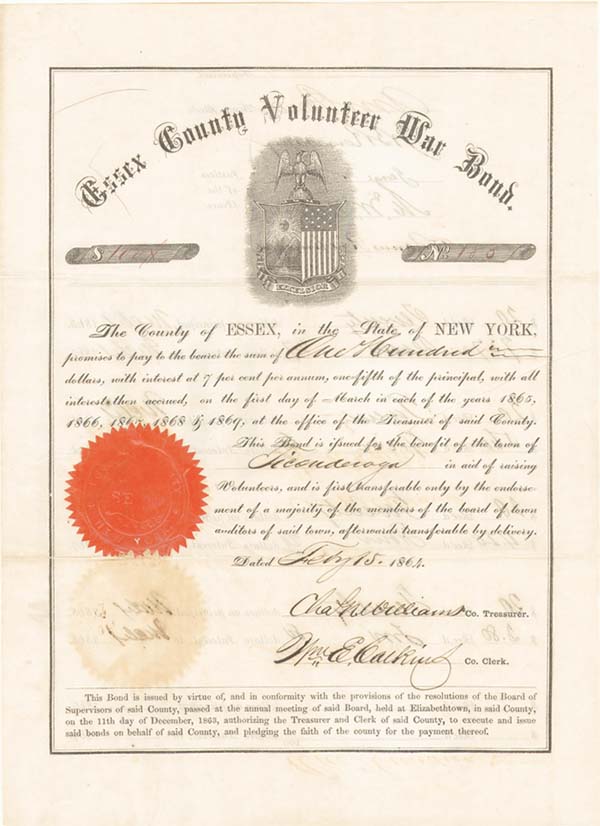 Essex County Volunteer War Bond.
$100
No.
EXCELSIOR
The County of ESSEX, in the State of NEW YORK,
promises to pay to the bearer the sum of One Hundred
dollars, with interest at 7 per cent per annum, one-fifth of the principal, with all
interest then accrued, on the first day of March in each of the years 1865,
1866, 1867, 1868 & 1869, at the office of the Treasurer of said County.
This Bond is issued for the benefit of the town of
Ticonderoga in aid of raising
Volunteers, and is first transferable only by the endorse-
ment of a majority of the members of the board of town
auditors of said town, afterwards transferable by delivery.
Dated Feby 15. 1864.
Chas N Williams Co. Treasurer.
Wm E Calkins Co. Clerk.
This Bond is issued by virtue of, and in conformity with the provisions of the resolutions of the Board of
Supervisors of said County, passed at the annual meeting of said Board, held at Elizabethtown, in said County,
on the 11th day of December, 1863, authorizing the Treasurer and Clerk of said County, to execute and issue
said bonds on behalf of said County, and pledging the faith of the county for the payment thereof.